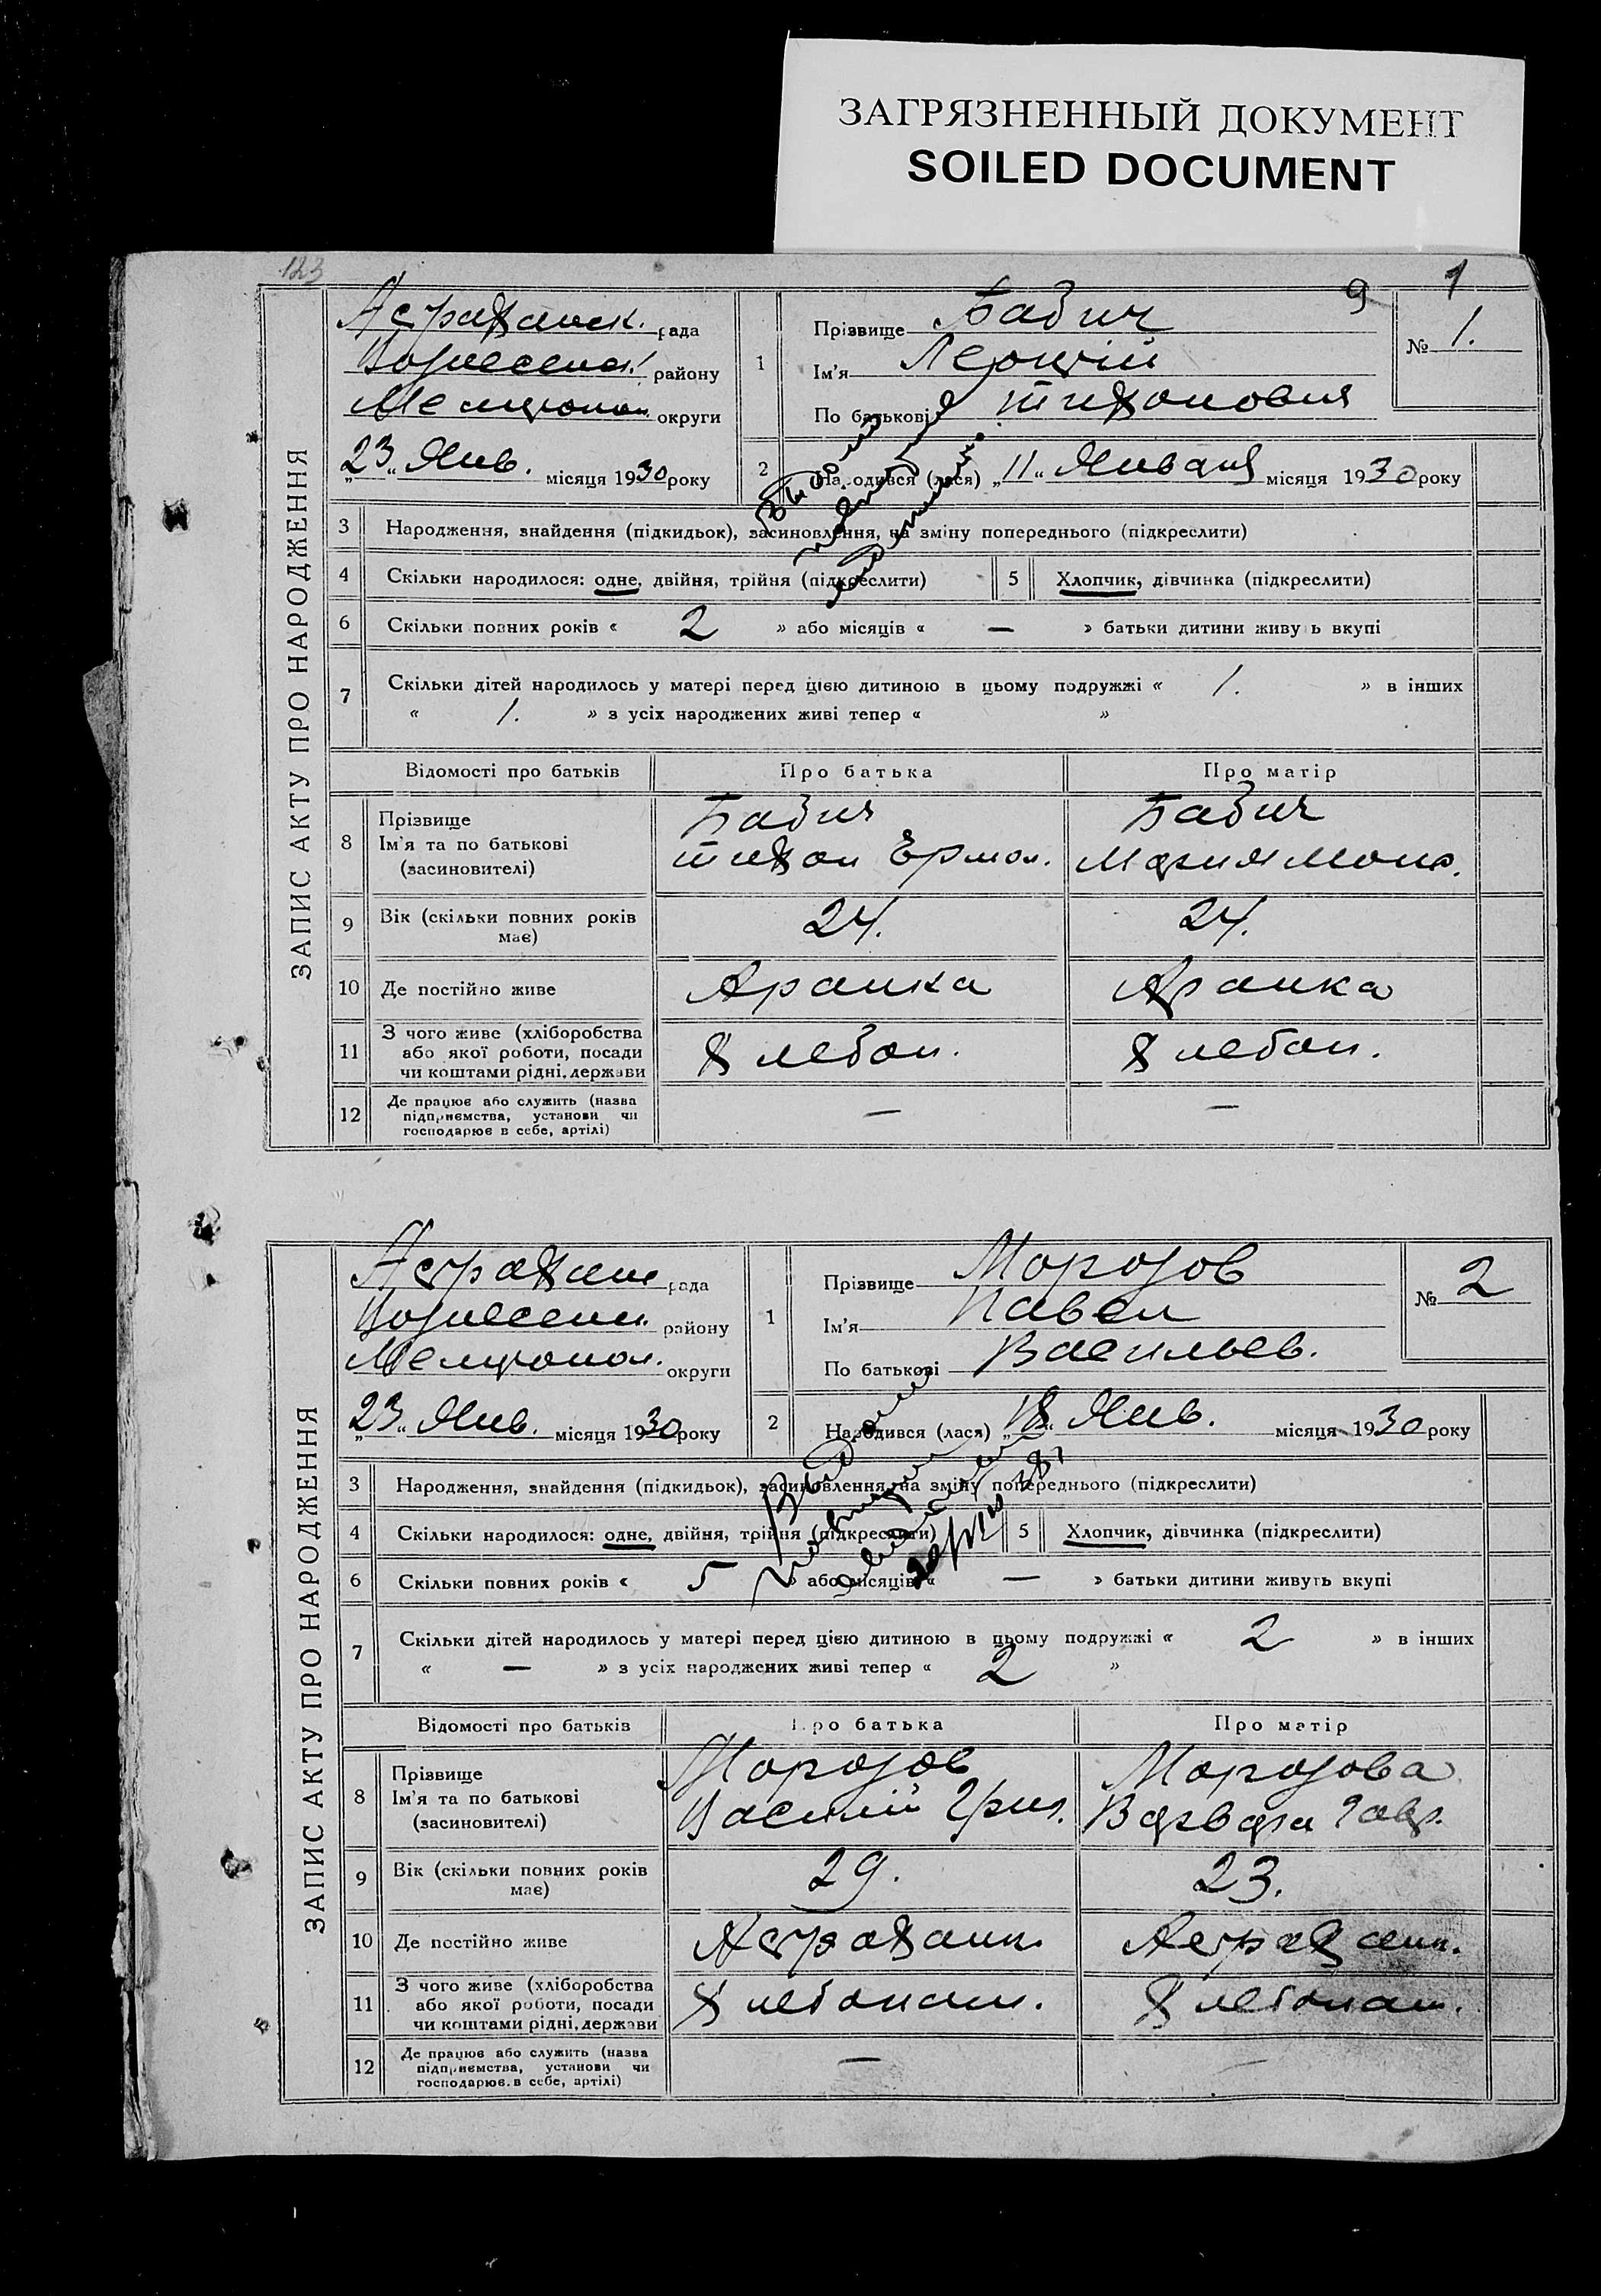 ЗАГРЯЗНЕННЫЙ ДОКУМЕНТ
SOILED DOCUMENT
123
9 1
ЗАПИС АКТУ ПРО НАРОДЖЕННЯ
Астраханск. рада
Вознесенск. району
Мелитопол. округи
„23“ Янв. місяця 1930 року
1 Прізвище Бабич
Ім'я
По батькові Тихонович
№ 1.
2 Народився (лася) „11“ Января місяця 1930 року
3 Народження, знайдення (підкидьок), засиновлення, на зміну попереднього (підкреслити)
4 Скільки народилося: одне, двійня, трійня (підкреслити) 5 Хлопчик, дівчинка (підкреслити)
6 Скільки повних років « 2 » або місяців « — » батьки дитини живуть вкупі
7 Скільки дітей народилось у матері перед цією дитиною в цьому подружжі « 1. » в інших
« 1. » з усіх народжених живі тепер « »
Відомості про батьків Про батька Про матір
8 Прізвище Бабич Бабич
Ім'я та по батькові Тихон Ермол. Мария
(засиновителі)
9 Вік (скільки повних років має) 24. 24.
10 Де постійно живе
11 З чого живе (хліборобства
або якої роботи, посади Хлебоп. Хлебоп.
чи коштами рідні, держави
12 Де працює або служить (назва
підприємства, установи чи — —
господарює в себе, артілі)
ЗАПИС АКТУ ПРО НАРОДЖЕННЯ
Астрахан рада
Вознесенк. району
Мелитопол. округи
„23“ Янв. місяця 1930 року
1 Прізвище Морозов
Ім'я Павел
По батькові Васильев.
№ 2
2 Народився (лася) „18“ Янв. місяця 1930 року
3 Народження, знайдення (підкидьок), засиновлення, на зміну попереднього (підкреслити)
4 Скільки народилося: одне, двійня, трійня (підкреслити) 5 Хлопчик, дівчинка (підкреслити)
6 Скільки повних років « 5 » або місяців « — » батьки дитини живуть вкупі
7 Скільки дітей народилось у матері перед цією дитиною в цьому подружжі « 2 » в інших
« — » з усіх народжених живі тепер « 2 »
Відомості про батьків Про батька Про матір
8 Прізвище Морозов Морозова
Ім'я та по батькові Василий Григ. Варвара Гавр.
(засиновителі)
9 Вік (скільки повних років має) 29. 23.
10 Де постійно живе Астраханк. Астраханк.
11 З чого живе (хліборобства
або якої роботи, посади Хлебопаш. Хлебопаш.
чи коштами рідні, держави
12 Де працює або служить (назва
підприємства, установи чи — —
господарює в себе, артілі)